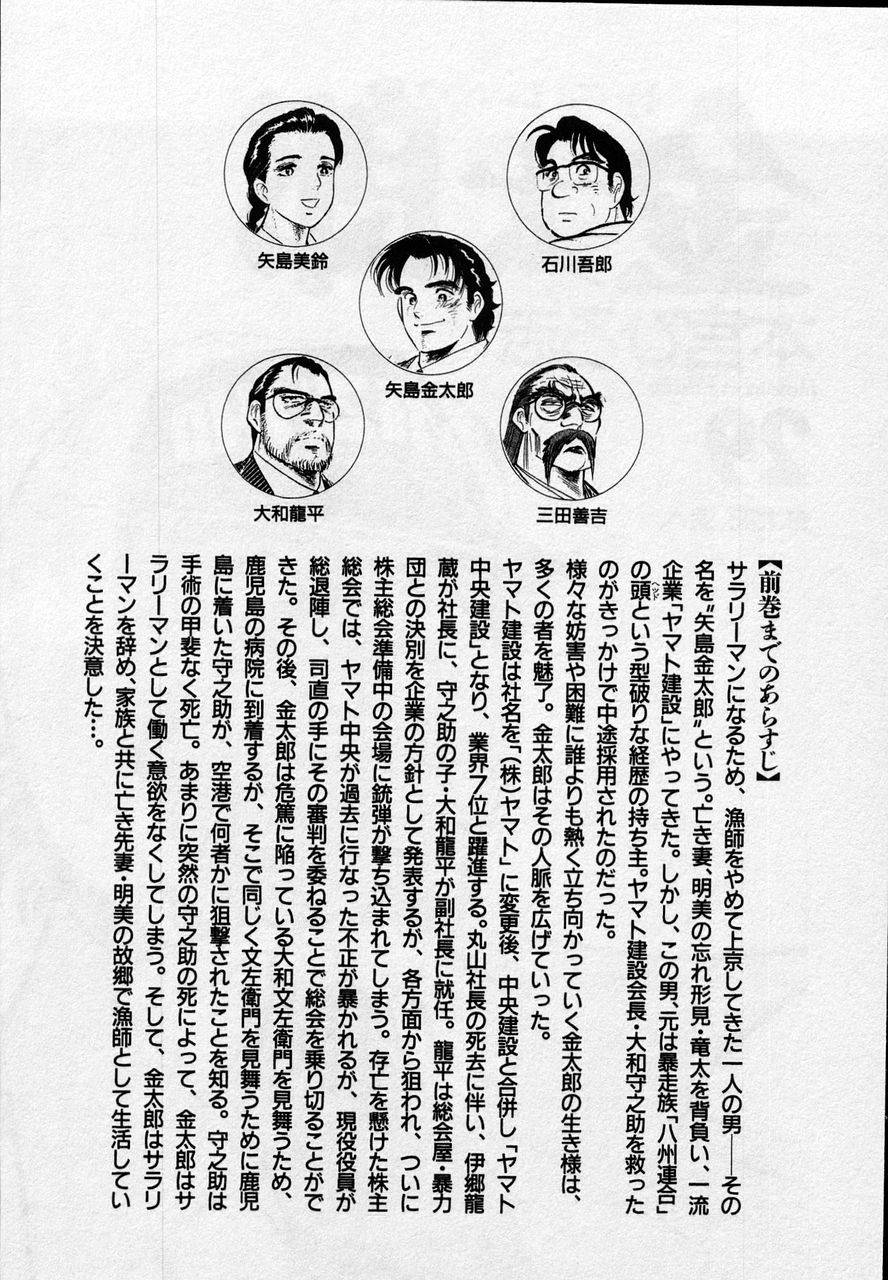 石川吾郎
矢島美鈴
矢島金太郎
三田善吉
大和龍平
【前巻までのあらすじ】
サラリーマンになるため、漁師をやめて上京してきた一人の男――その
名を〝矢島金太郎〟という。亡き妻、明美の忘れ形見・竜太を背負い、一流
企業「ヤマト建設」にやってきた。しかし、この男、元は暴走族「八州連合」
の頭という型破りな経歴の持ち主。ヤマト建設会長・大和守之助を救った
ヘッド
のがきっかけで中途採用されたのだった。
様々な妨害や困難に誰よりも熱く立ち向かっていく金太郎の生き様は、
多くの者を魅了。金太郎はその人脈を広げていった。
ヤマト建設は社名を「(株)ヤマト」に変更後、中央建設と合併し「ヤマト
中央建設」となり、業界7位と躍進する。丸山社長の死去に伴い、伊郷龍
蔵が社長に、守之助の子・大和龍平が副社長に就任。龍平は総会屋・暴力
団との決別を企業の方針として発表するが、各方面から狙われ、ついに
株主総会準備中の会場に銃弾が撃ち込まれてしまう。存亡を懸けた株主
総会では、ヤマト中央が過去に行なった不正が暴かれるが、現役役員が
総退陣し、司直の手にその審判を委ねることで総会を乗り切ることがで
きた。その後、金太郎は危篤に陥っている大和文左衛門を見舞うため、
鹿児島の病院に到着するが、そこで同じく文左衛門を見舞うために鹿児
島に着いた守之助が、空港で何者かに狙撃されたことを知る。守之助は
手術の甲斐なく死亡。あまりに突然の守之助の死によって、金太郎はサ
ラリーマンとして働く意欲をなくしてしまう。そして、金太郎はサラリ
ーマンを辞め、家族と共に亡き先妻・明美の故郷で漁師として生活してい
くことを決意した…。